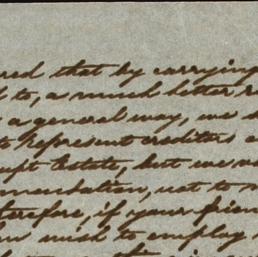 red that by carrying
to, a much better r
a general way, we
to represent creditors
upt Estate, but we
mmendation, not to
therefore, if your frien
wish to employ